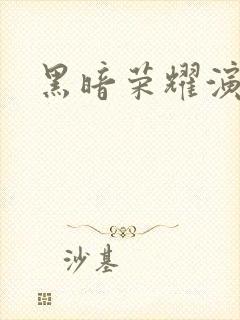 黑暗荣耀演
沙基